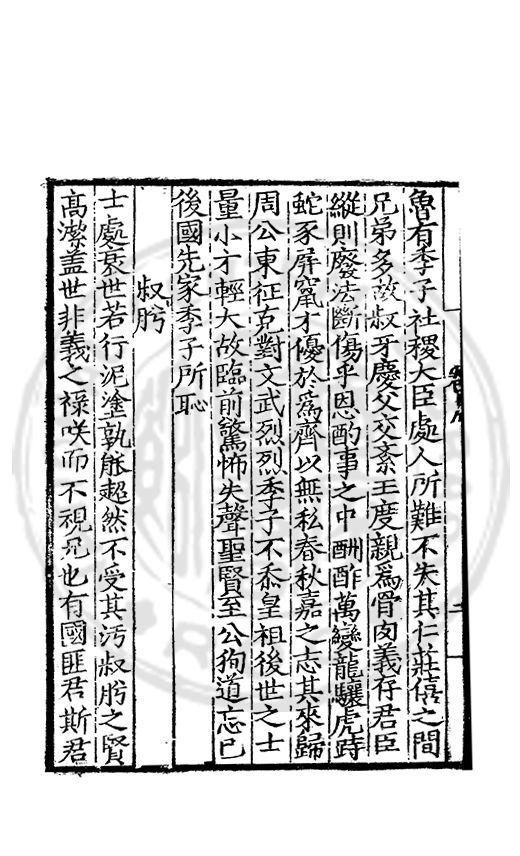 魯有季子社稷大臣處人所難不失其仁莊僖之間
兄弟多故叔牙慶父交紊王度親為骨肉義存君臣
縱則廢法斷傷乎恩酌事之中酬酢萬變龍驤虎跱
蛇豕屏竄才優於為齊以無私春秋嘉之志其來歸
周公東征克對文武烈烈季子不忝皇祖後世之士
量小才輕大故臨前驚怖失聲聖賢至公狥道忘己
後國先家季子所恥
叔肸
士處衰世若行泥塗孰能超然不受其汚叔肸之賢
高潔蓋世非義之祿咲而不視兄也有國匪君斯君